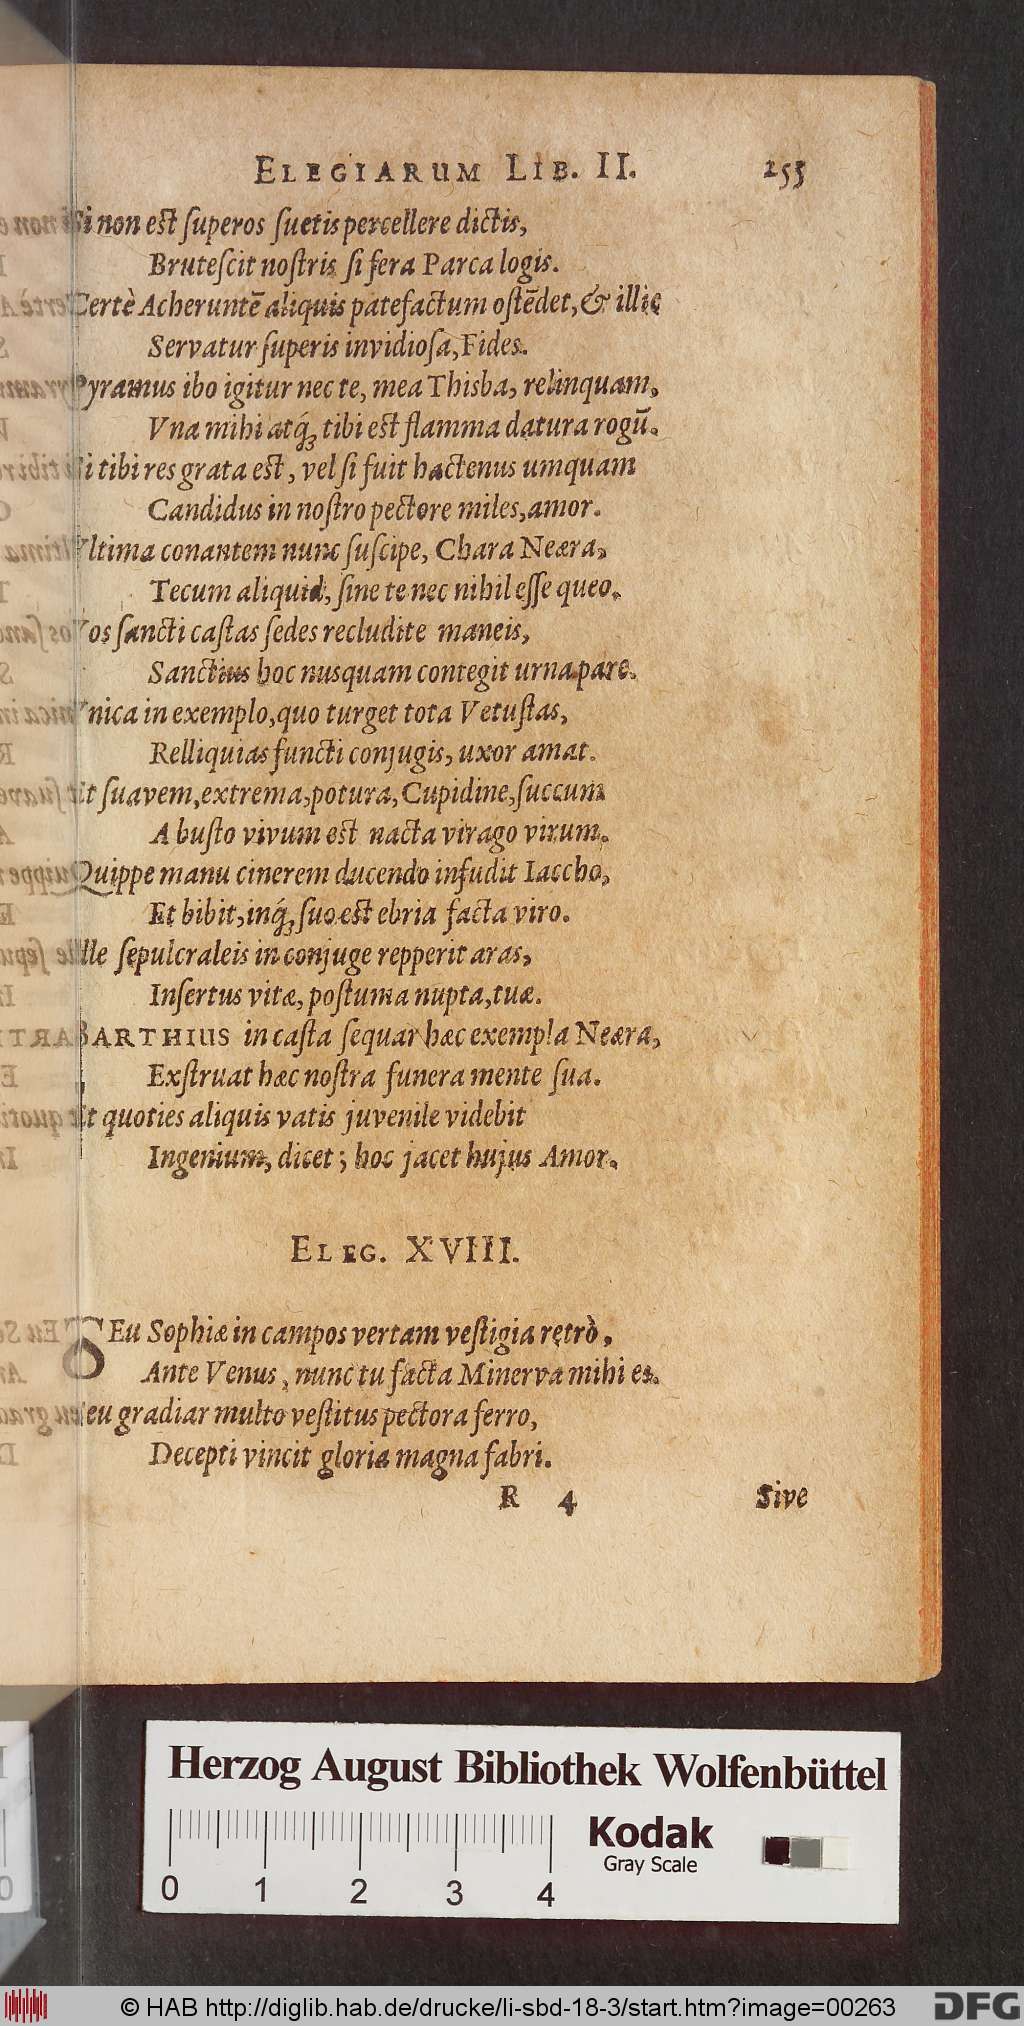 ELEGIARUM LIB. II. 253
Si non est ſuperos ſuetis percellere dictis,
Bruteſcit noſtris ſi fera Parca logis.
Certè Acheruntē aliquis patefactum oſtēdet, & illic
Servatur ſuperis invidioſa, Fides.
Pyramus ibo igitur nec te, mea Thisba, relinquam,
Vna mihi atq́; tibi est flamma datura rogū.
Si tibi res grata est, vel ſi fuit hactenus umquam
Candidus in noſtro pectore miles, amor.
Vltima conantem nunc ſuſcipe, Chara Neæra,
Tecum aliquid, ſine te nec nihil eſſe queo.
Vos ſancti caſtas ſedes recludite maneis,
Sanctius hoc nusquam contegit urna pare.
Vnica in exemplo, quo turget tota Vetuſtas,
Relliquias functi conjugis, uxor amat.
Et ſuavem, extrema, potura, Cupidine, ſuccum
A buſto vivum est nacta virago virum.
Quippe manu cinerem ducendo infudit Iaccho,
Et bibit, inq́; ſuo est ebria facta viro.
Ille ſepulcraleis in conjuge repperit aras,
Inſertus vitæ, poſtuma nupta, tuæ.
BARTHIUS in caſta ſequar hæc exempla Neæra,
Exſtruat hæc noſtra funera mente ſua.
Et quoties aliquis vatis juvenile videbit
Ingenium, dicet; hoc jacet hujus Amor.
ELEG. XVIII.
SEu Sophiæ in campos vertam veſtigia retrò,
Ante Venus, nunc tu facta Minerva mihi es.
Seu gradiar multo veſtitus pectora ferro,
Decepti vincit gloria magna fabri.
R 4 Sive
Herzog August Bibliothek Wolfenbüttel
Kodak
Gray Scale
0 1 2 3 4
© HAB http://diglib.hab.de/drucke/li-sbd-18-3/start.htm?image=00263
DFG